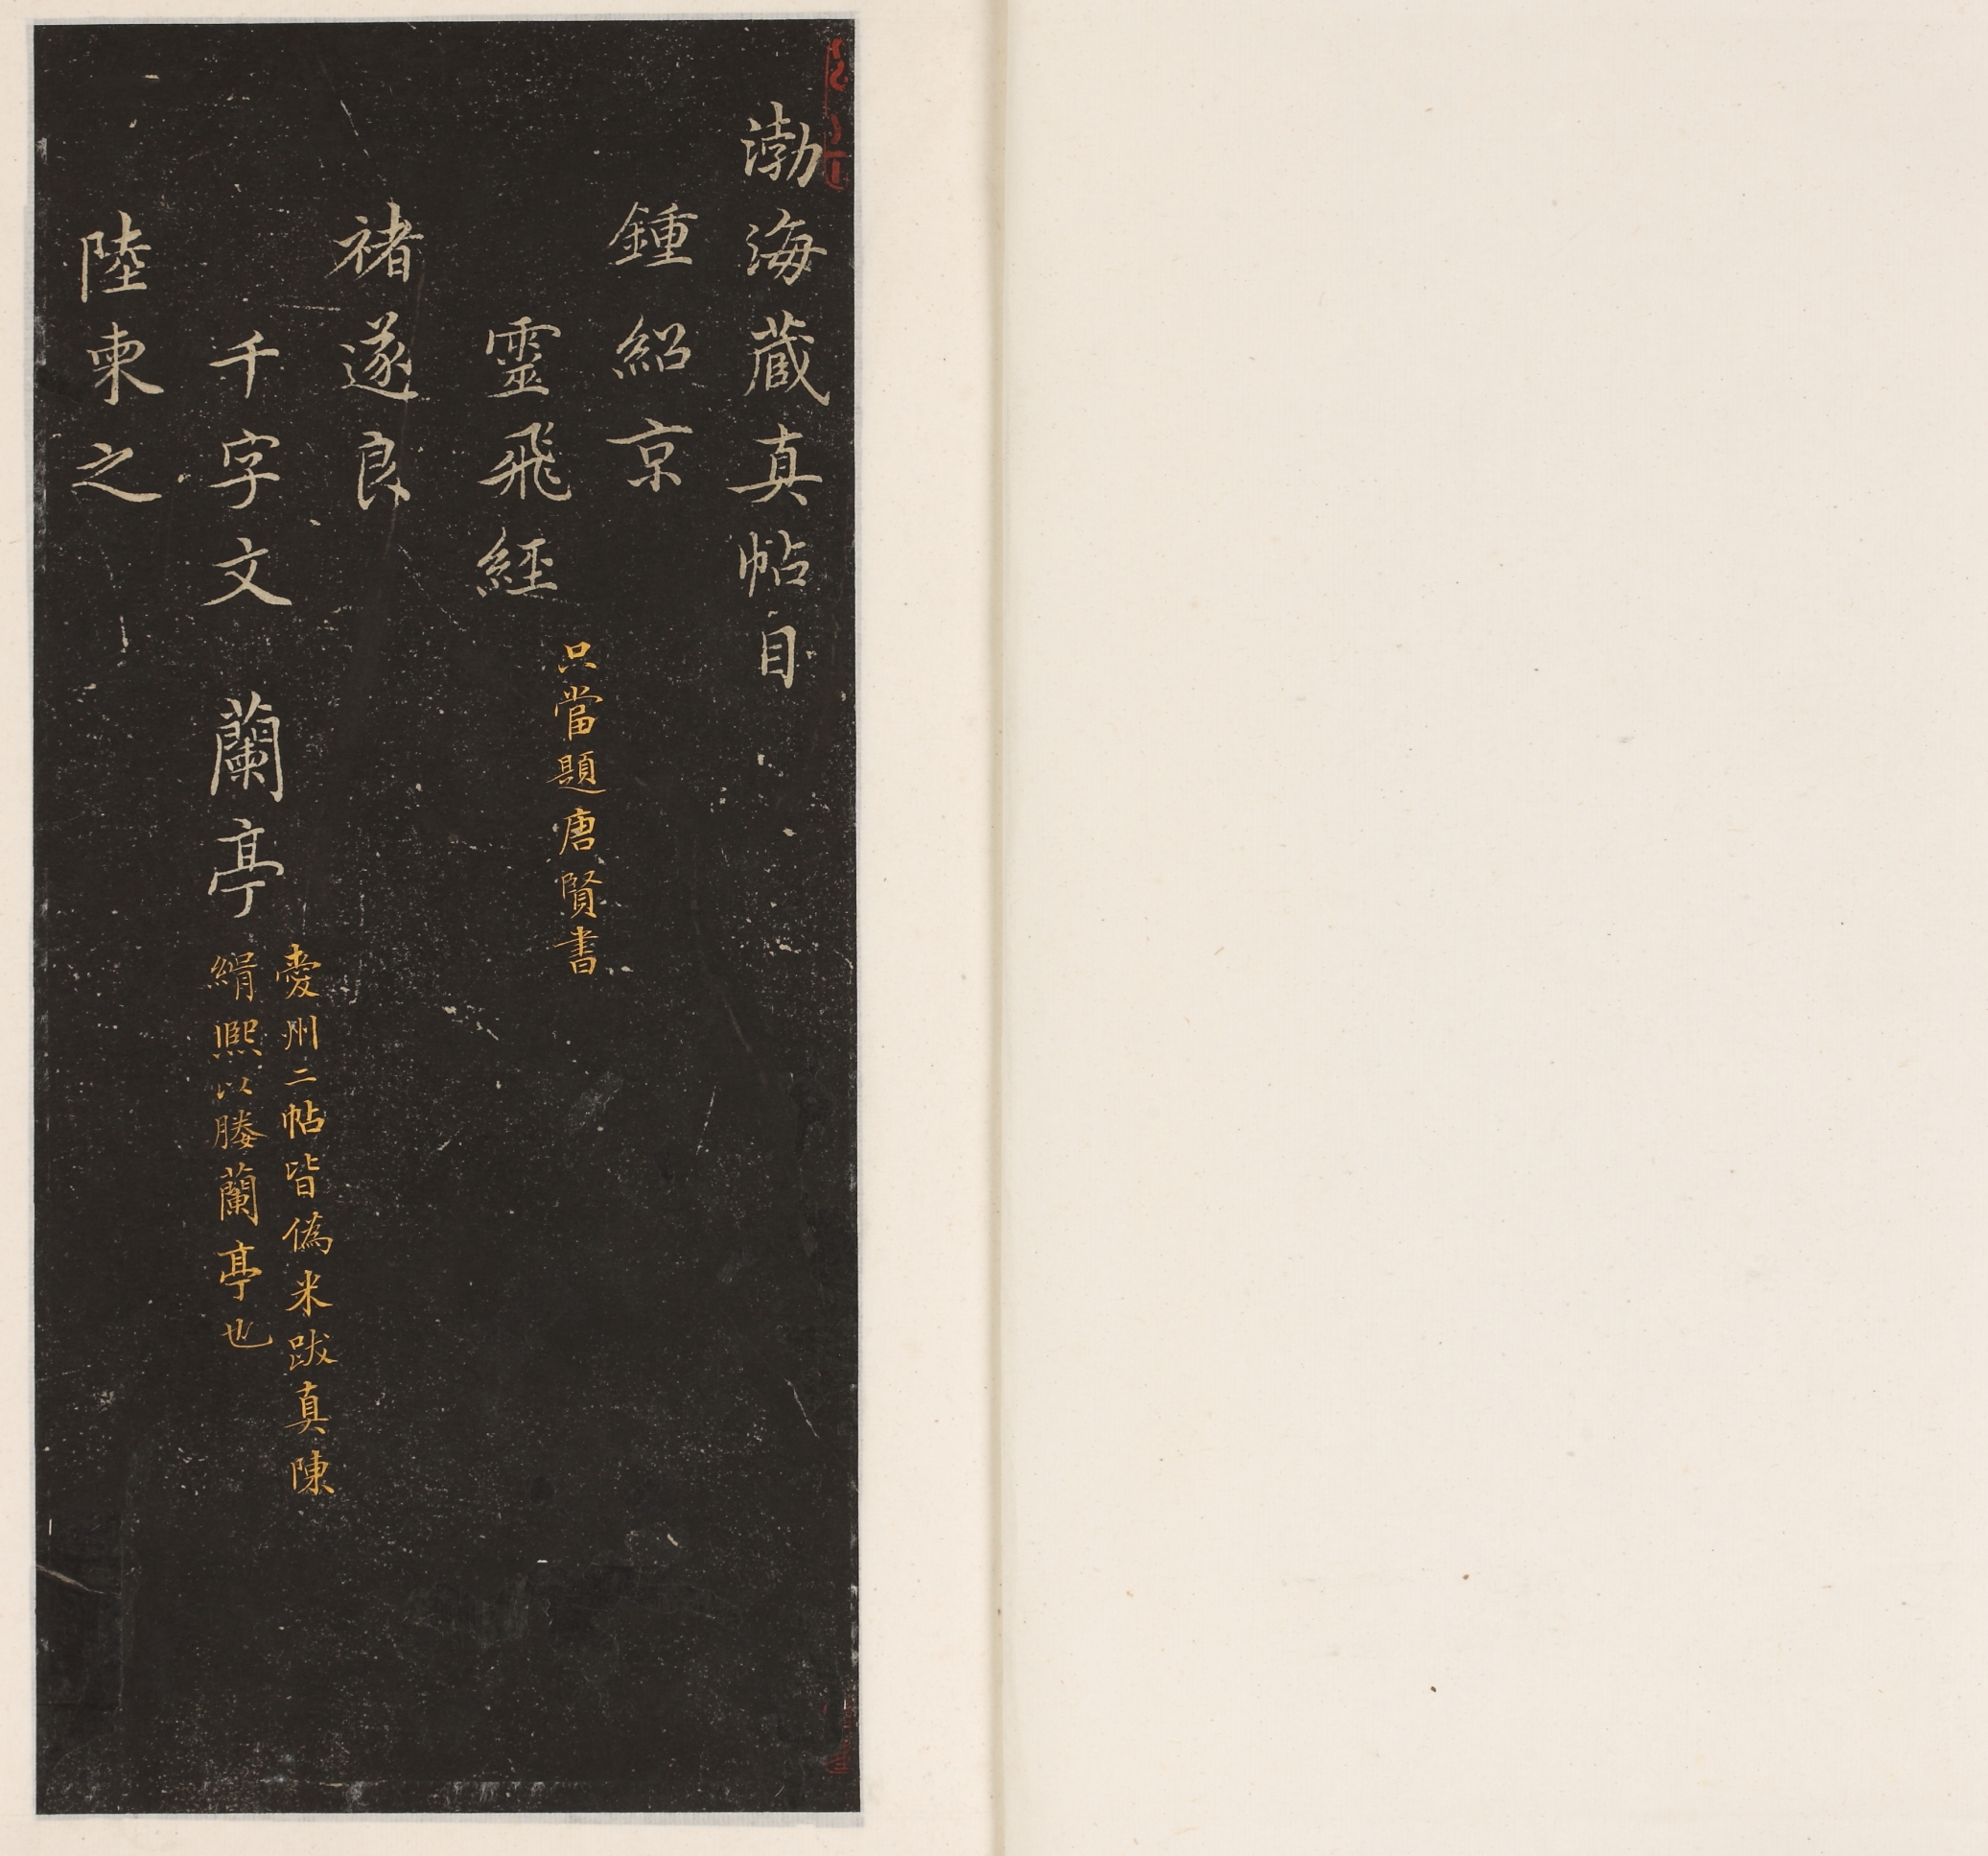 渤海蔵真帖目
鍾紹京
靈飛經
只當題唐賢書
褚遂良
千字文 蘭亭
愛州二帖皆偽米跋真陳
緝熙以媵蘭亭也
陸柬之